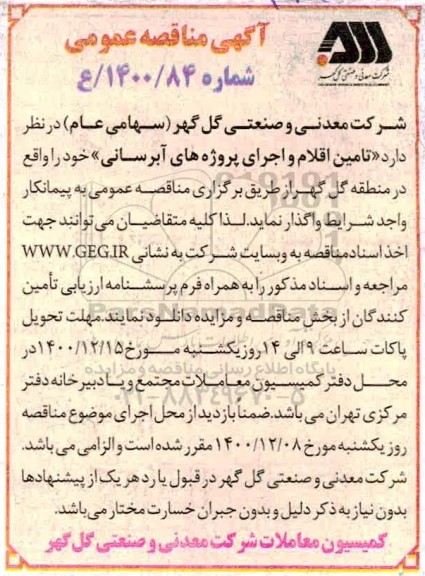 آگهی مناقصه عمومی
شماره ۱۴۰۰/۸۴/ع
شرکت معدنی و صنعتی گل گهر
شرکت معدنی و صنعتی گل گهر (سهامی عام) در نظر
دارد «تامین اقلام و اجرای پروژه های آبرسانی» خود را واقع
در منطقه گل گهر از طریق برگزاری مناقصه عمومی به پیمانکار
واجد شرایط واگذار نماید. لذا کلیه متقاضیان می توانند جهت
اخذ اسناد مناقصه به وبسایت شرکت به نشانی WWW.GEG.IR
مراجعه و اسناد مذکور را به همراه فرم پرسشنامه ارزیابی تأمین
کنندگان از بخش مناقصه و مزایده دانلود نمایند. مهلت تحویل
پاکات ساعت ۹ الی ۱۴ روز یکشنبه مورخ ۱۴۰۰/۱۲/۱۵ در
محل دفتر کمیسیون معاملات مجتمع و یا دبیرخانه دفتر
مرکزی تهران می باشد. ضمنا بازدید از محل اجرای موضوع مناقصه
روز یکشنبه مورخ ۱۴۰۰/۱۲/۰۸ مقرر شده است و الزامی می باشد.
شرکت معدنی و صنعتی گل گهر در قبول یا رد هر یک از پیشنهادها
بدون نیاز به ذکر دلیل و بدون جبران خسارت مختار می باشد.
کمیسیون معاملات شرکت معدنی و صنعتی گل گهر